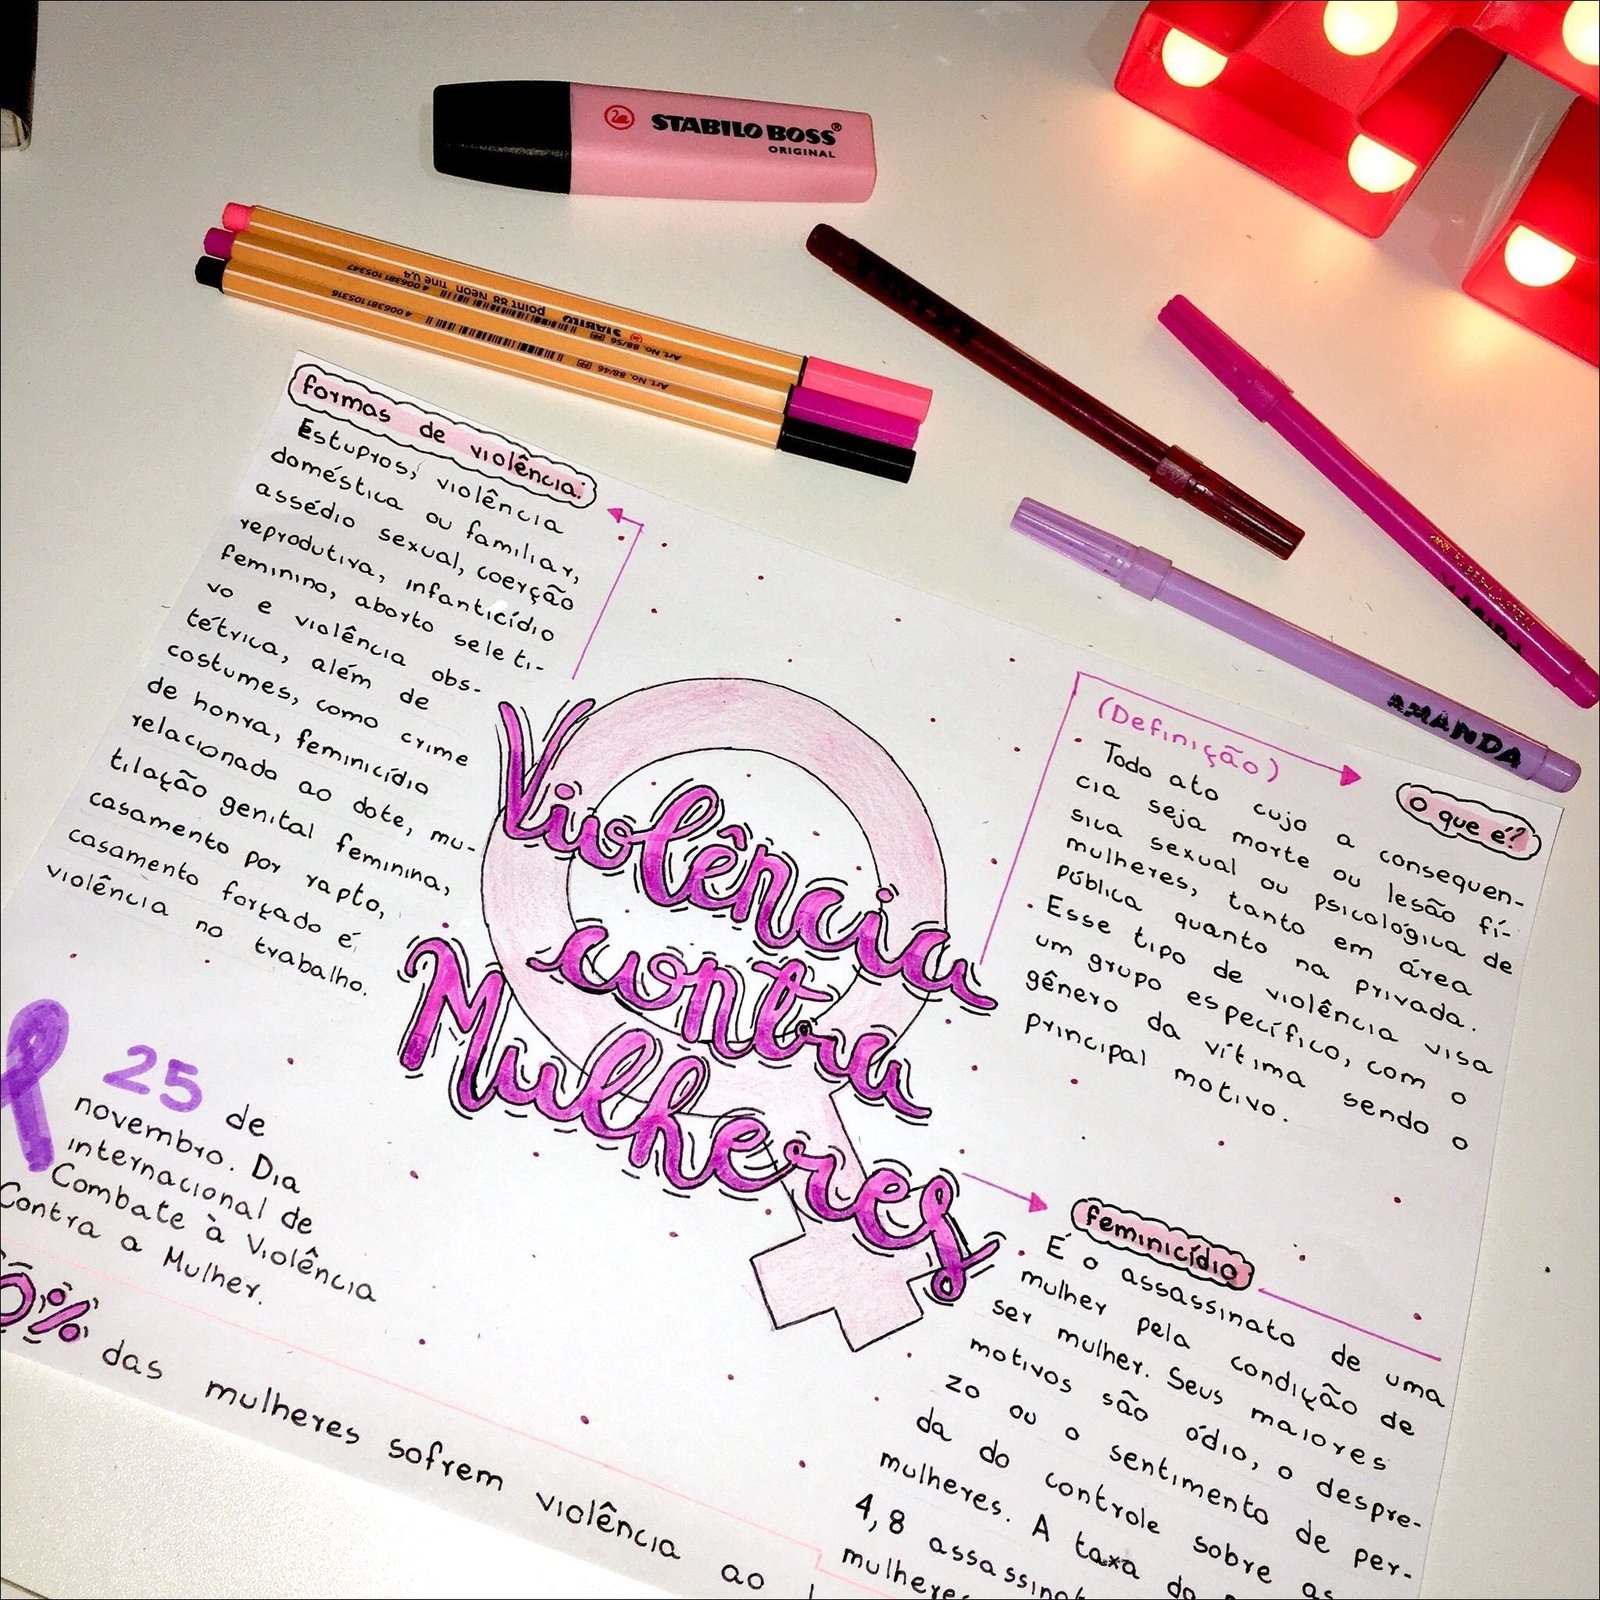 STABILO BOSS®
ORIGINAL
STABILO
point 88 Neon fine 0,4
Art. No. 88/56
4 006381 105347
Art. No. 88/46
4 006381 105316
AMANDA
formas de violência:
Estupros, violência
doméstica ou familiar,
assédio sexual, coerção
reprodutiva, infanticídio
feminino, aborto seleti-
vo e violência obs-
tétrica, além de
costumes, como crime
de honra, feminicídio
relacionado ao dote, mu-
tilação genital feminina,
casamento por rapto,
casamento forçado é
violência no trabalho.
Violência
contra
Mulheres
(Definição)
o que é?
Todo ato cujo a consequen-
cia seja morte ou lesão fí-
sica sexual ou psicológica de
mulheres, tanto em área
pública quanto na privada.
Esse tipo de violência visa
um grupo específico, com o
gênero da vítima sendo o
principal motivo.
25 de
novembro. Dia
internacional de
Combate à Violência
Contra a Mulher.
feminicídio
É o assassinato de uma
mulher pela condição de
ser mulher. Seus maiores
motivos são ódio, o despre-
zo ou o sentimento de per-
da do controle sobre as
mulheres. A taxa do
4,8
0% das mulheres sofrem violência ao